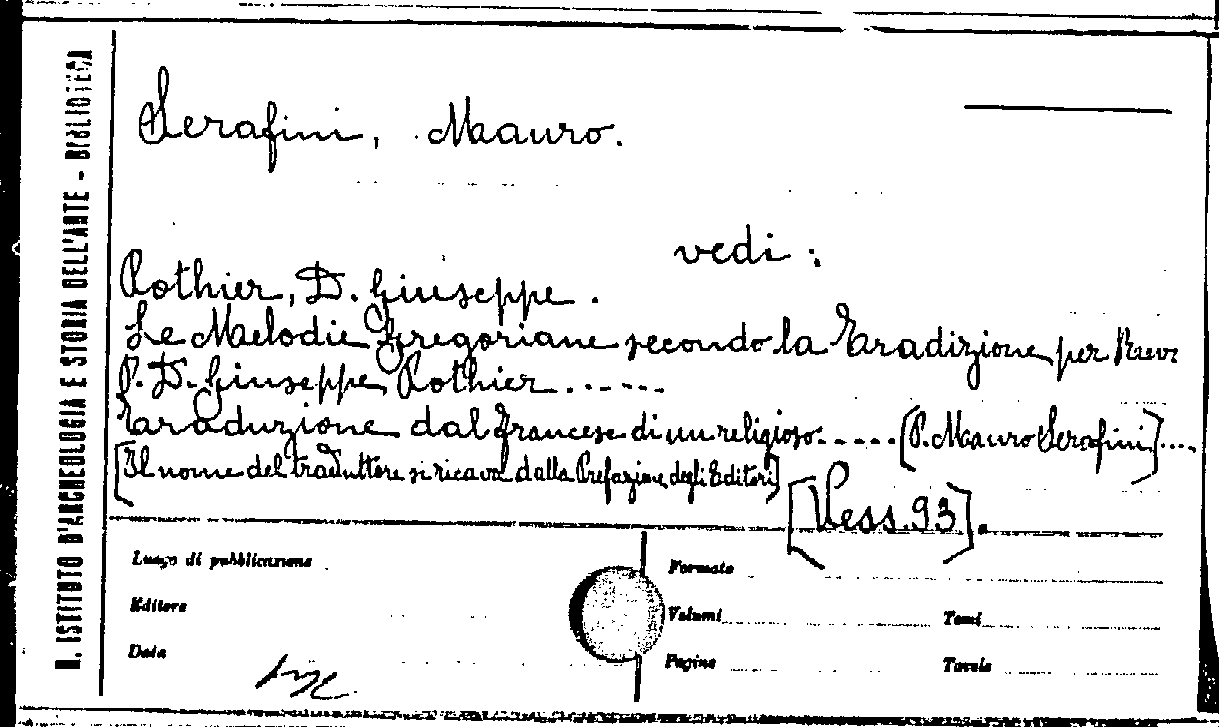 R. ISTITUTO D'ARCHEOLOGIA E STORIA DELL'ARTE - BIBLIOTECA
Serafini, Mauro.
vedi:
Pothier, D. Giuseppe.
Le Melodie Gregoriane secondo la Tradizione per Rev
P. D. Giuseppe Pothier......
Traduzione dal francese di un religioso..... [P. Mauro Serafini]....
[Il nome del traduttore si ricava dalla Prefazione degli Editori]
[Vess. 93].
Luogo di pubblicazione
Formato
Editore
Volumi
Tomi
Data
Pagine
Tavole